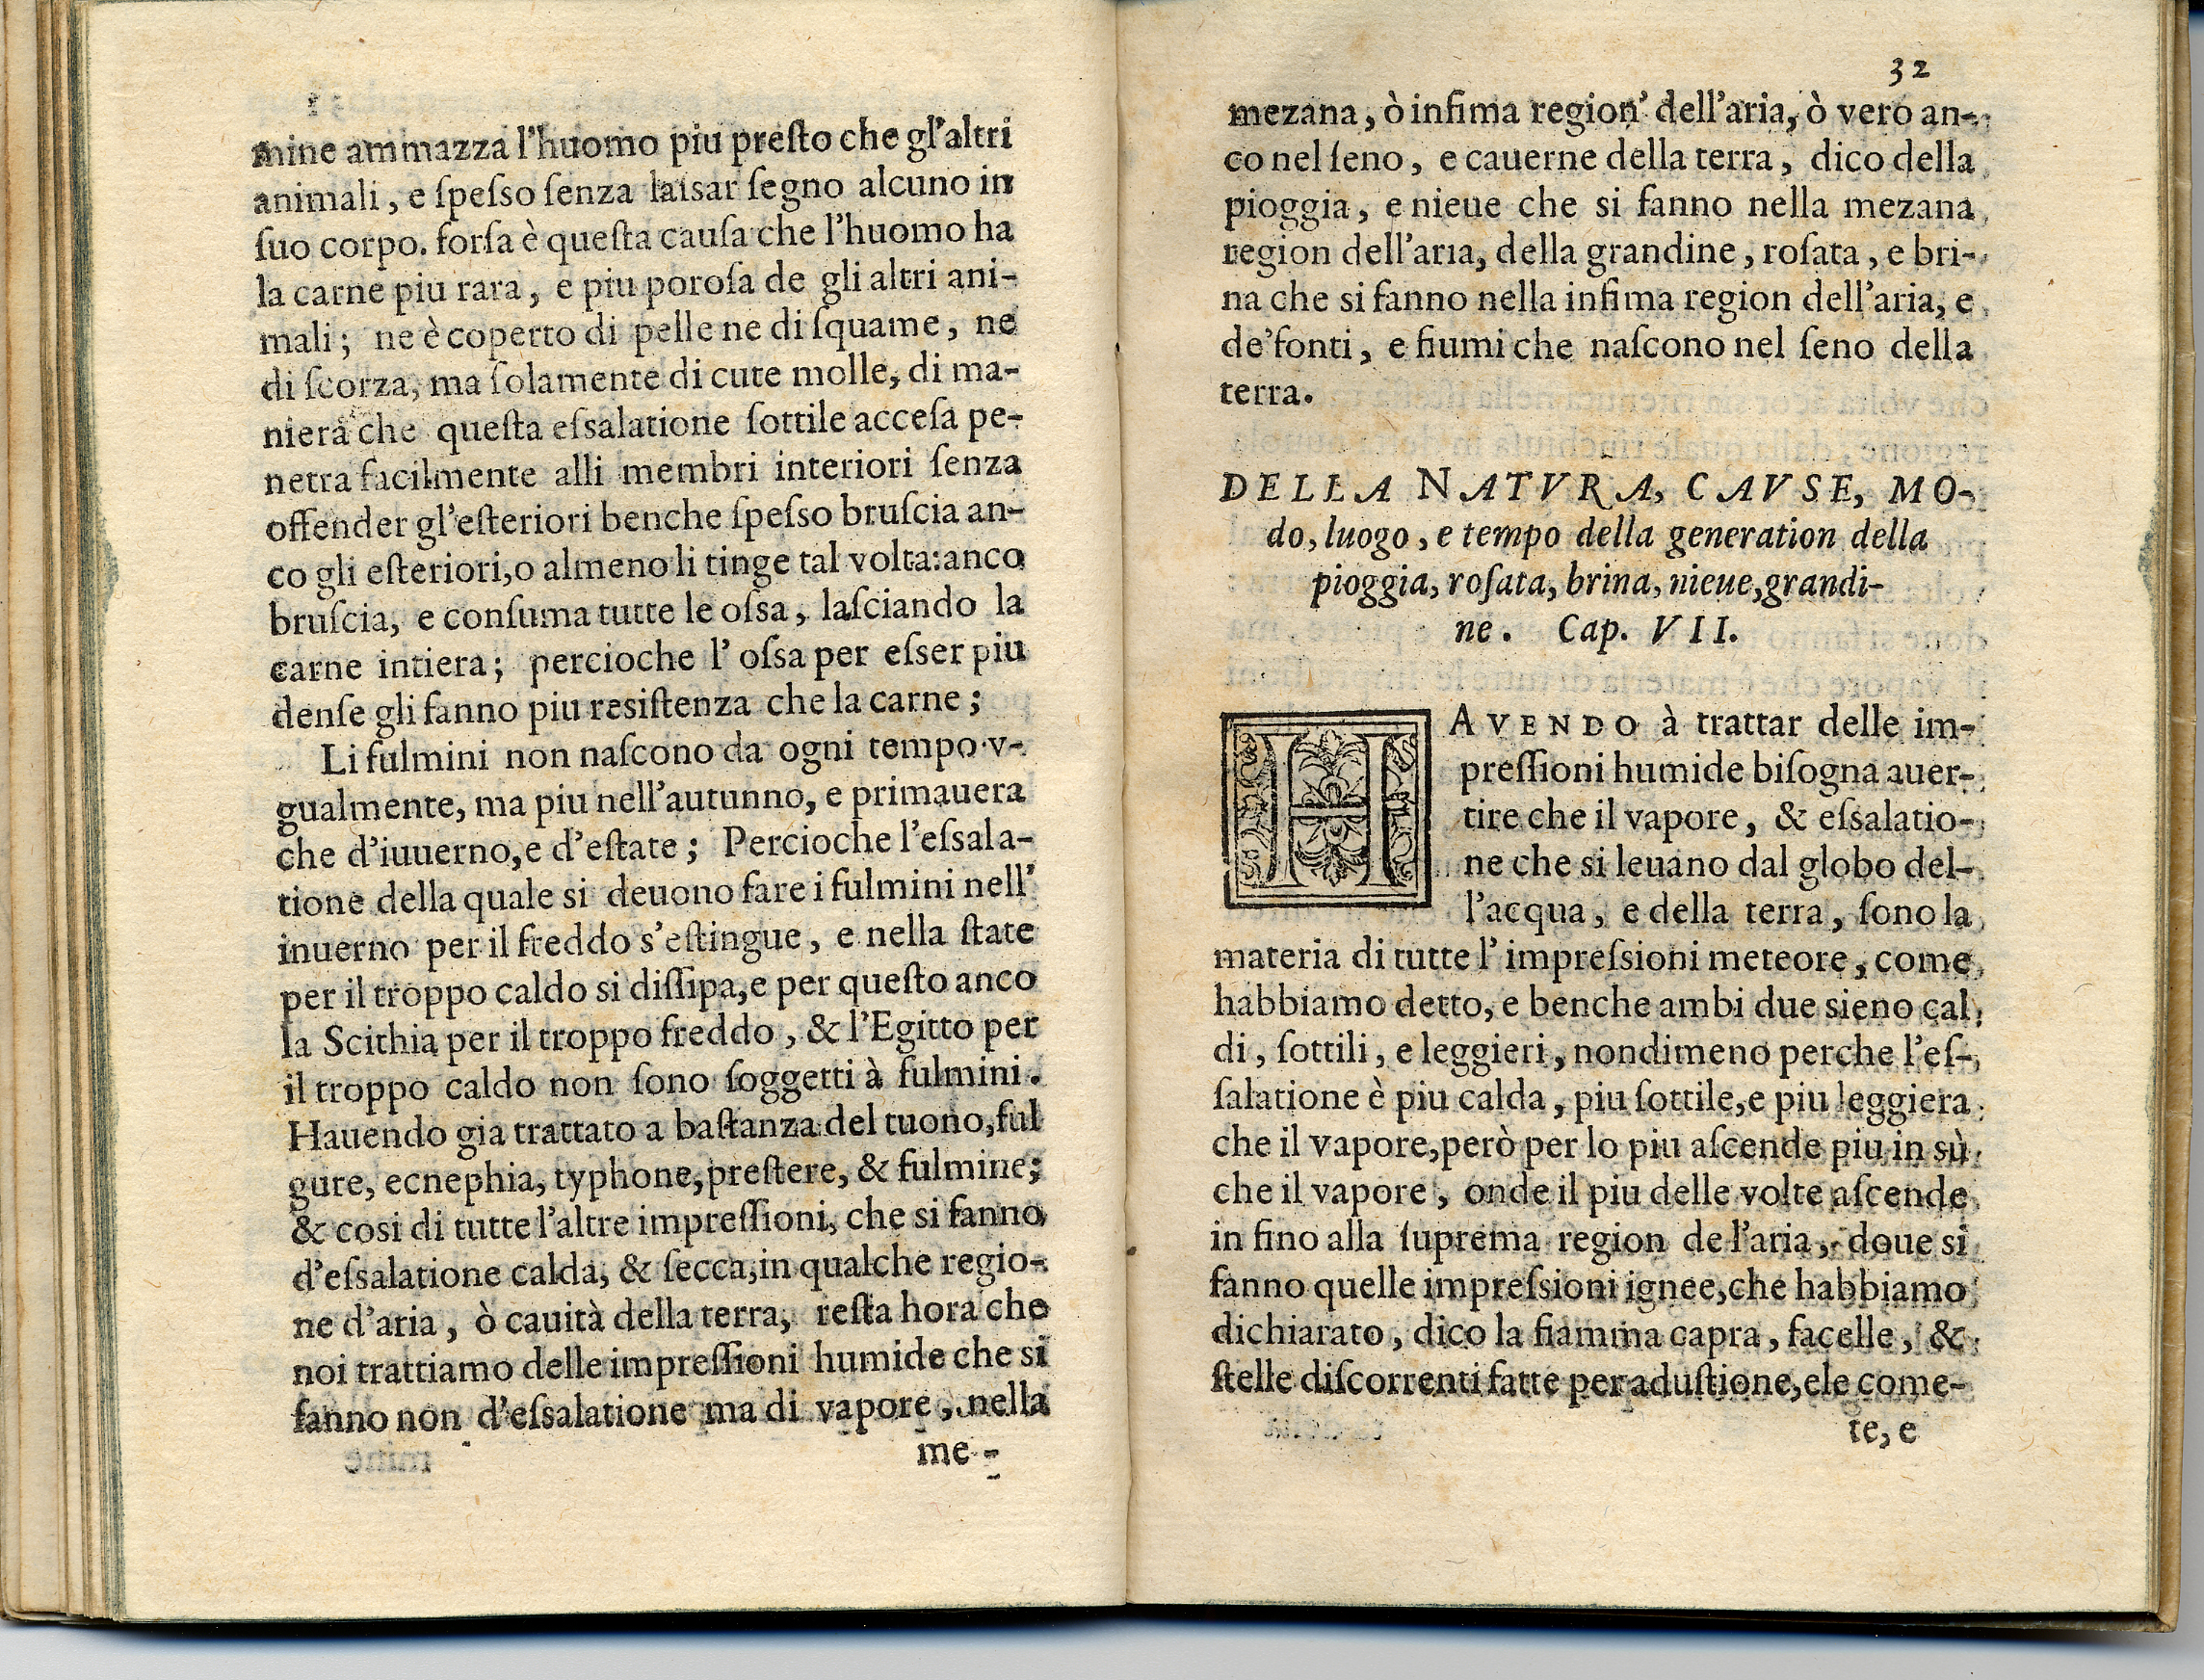 mine ammazza l'huomo piu preſto che gl'altri
animali, e ſpeſso ſenza laisar ſegno alcuno in
ſuo corpo. forſa è queſta cauſa che l'huomo ha
la carne piu rara, e piu poroſa de gli altri ani-
mali; ne è coperto di pelle ne di ſquame, ne
di ſcorza, ma ſolamente di cute molle, di ma-
niera che queſta eſsalatione ſottile acceſa pe-
netra facilmente alli membri interiori ſenza
offender gl'eſteriori benche ſpeſso bruſcia an-
co gli eſteriori,o almeno li tinge tal volta:anco
bruſcia, e conſuma tutte le oſsa, laſciando la
carne intiera; percioche l' oſsa per eſser piu
denſe gli fanno piu resiſtenza che la carne;
Li fulmini non naſcono da ogni tempo v-
gualmente, ma piu nell'autunno, e primauera
che d'iuuerno,e d'eſtate; Percioche l'eſsala-
tione della quale si deuono fare i fulmini nell'
inuerno per il freddo s'eſtingue, e nella ſtate
per il troppo caldo si diſſipa,e per queſto anco
la Scithia per il troppo freddo, & l'Egitto per
il troppo caldo non ſono ſoggetti à fulmini.
Hauendo gia trattato a baſtanza del tuono,ful
gure, ecnephia, typhone,preſtere, & fulmine;
& cosi di tutte l'altre impreſſioni, che si fanno
d'eſsalatione calda, & ſecca,in qualche regio-
ne d'aria, ò cauità della terra, reſta hora che
noi trattiamo delle impreſſioni humide che si
fanno non d'eſsalatione ma di vapore, nella
me-
32
mezana, ò infima region' dell'aria, ò vero an-
co nel ſeno, e cauerne della terra, dico della
pioggia, e nieue che si fanno nella mezana
region dell'aria, della grandine, roſata, e bri-
na che si fanno nella infima region dell'aria, e
de'fonti, e fiumi che naſcono nel ſeno della
terra.
DELLA NATVRA, CAVSE, MO-
do, luogo, e tempo della generation della
pioggia, roſata, brina, nieue,grandi-
ne. Cap. VII.
HAVENDO à trattar delle im-
preſſioni humide biſogna auer-
tire che il vapore, & eſsalatio-
ne che si leuano dal globo del-
l'acqua, e della terra, ſono la
materia di tutte l' impreſsioni meteore, come
habbiamo detto, e benche ambi due sieno cal
di, ſottili, e leggieri, nondimeno perche l'eſ-
ſalatione è piu calda, piu ſottile,e piu leggiera
che il vapore,però per lo piu aſcende piu in sù
che il vapore, onde il piu delle volte aſcende
in fino alla ſuprema region de l'aria, doue si
fanno quelle impreſsioni ignee,che habbiamo
dichiarato, dico la fiamma capra, facelle, &
ſtelle diſcorrenti fatte per aduſtione,ele come-
te, e